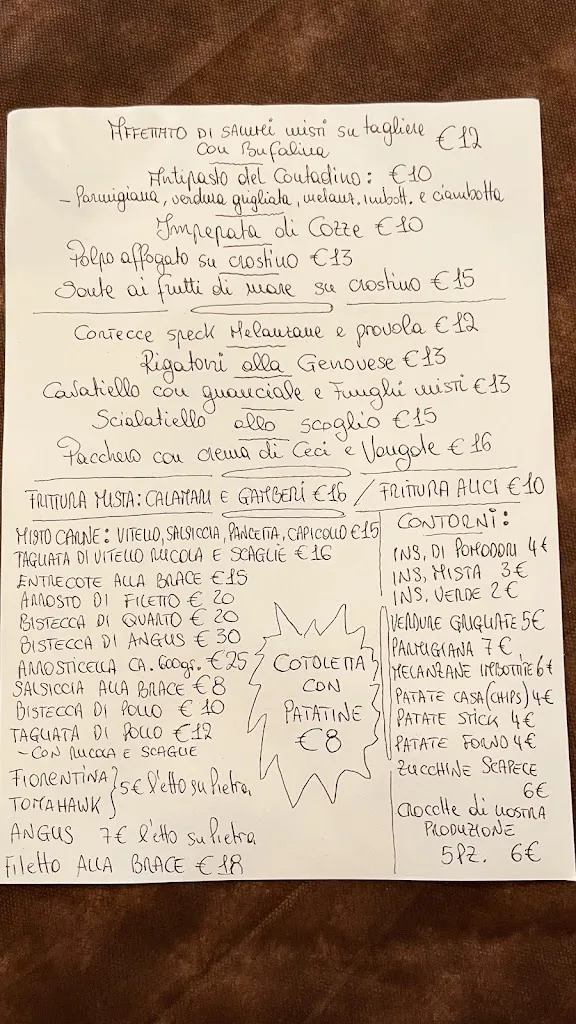 AFFETTATO DI SALUMI MISTI SU TAGLIERE €12
CON BUFALINA
Antipasto del Contadino: €10
- Parmigiana, verdura grigliata, melanz. imbott. e ciambotta
Impepata di Cozze €10
Polpo affogato su crostino €13
Soute ai frutti di mare su crostino €15
Cortecce speck Melanzane e provola €12
Rigatoni alla Genovese €13
Cavatiello con guanciale e Funghi misti €13
Scialatiello allo scoglio €15
Pacchero con crema di Ceci e Vongole €16
FRITTURA MISTA: CALAMARI E GAMBERI €16 / FRITTURA ALICI €10
MISTO CARNE: VITELLO, SALSICCIA, PANCETTA, CAPICOLLO €15
TAGLIATA DI VITELLO RUCOLA E SCAGLIE €16
ENTRECOTE ALLA BRACE €15
ARROSTO DI FILETTO € 20
BISTECCA DI QUARTO € 20
BISTECCA DI ANGUS € 30
ARROSTICELLA CA. 600gr. €25
SALSICCIA ALLA BRACE €8
BISTECCA DI POLLO € 10
TAGLIATA DI POLLO €12
- CON RUCOLA E SCAGLIE
FIORENTINA } 5€ l'etto su Pietra
TOMAHAWK
ANGUS 7€ l'etto su Pietra
Filetto ALLA BRACE € 18
COTOLETTA
CON
PATATINE
€8
CONTORNI:
INS. DI POMODORI 4€
INS. MISTA 3€
INS. VERDE 2€
VERDURE GRIGLIATE 5€
PARMIGIANA 7€
MELANZANE IMBOTTITE 6€
PATATE CASA (CHIPS) 4€
PATATE STICK 4€
PATATE FORNO 4€
ZUCCHINE SCAPECE
6€
CROCCHE di NOSTRA
PRODUZIONE
5PZ. 6€